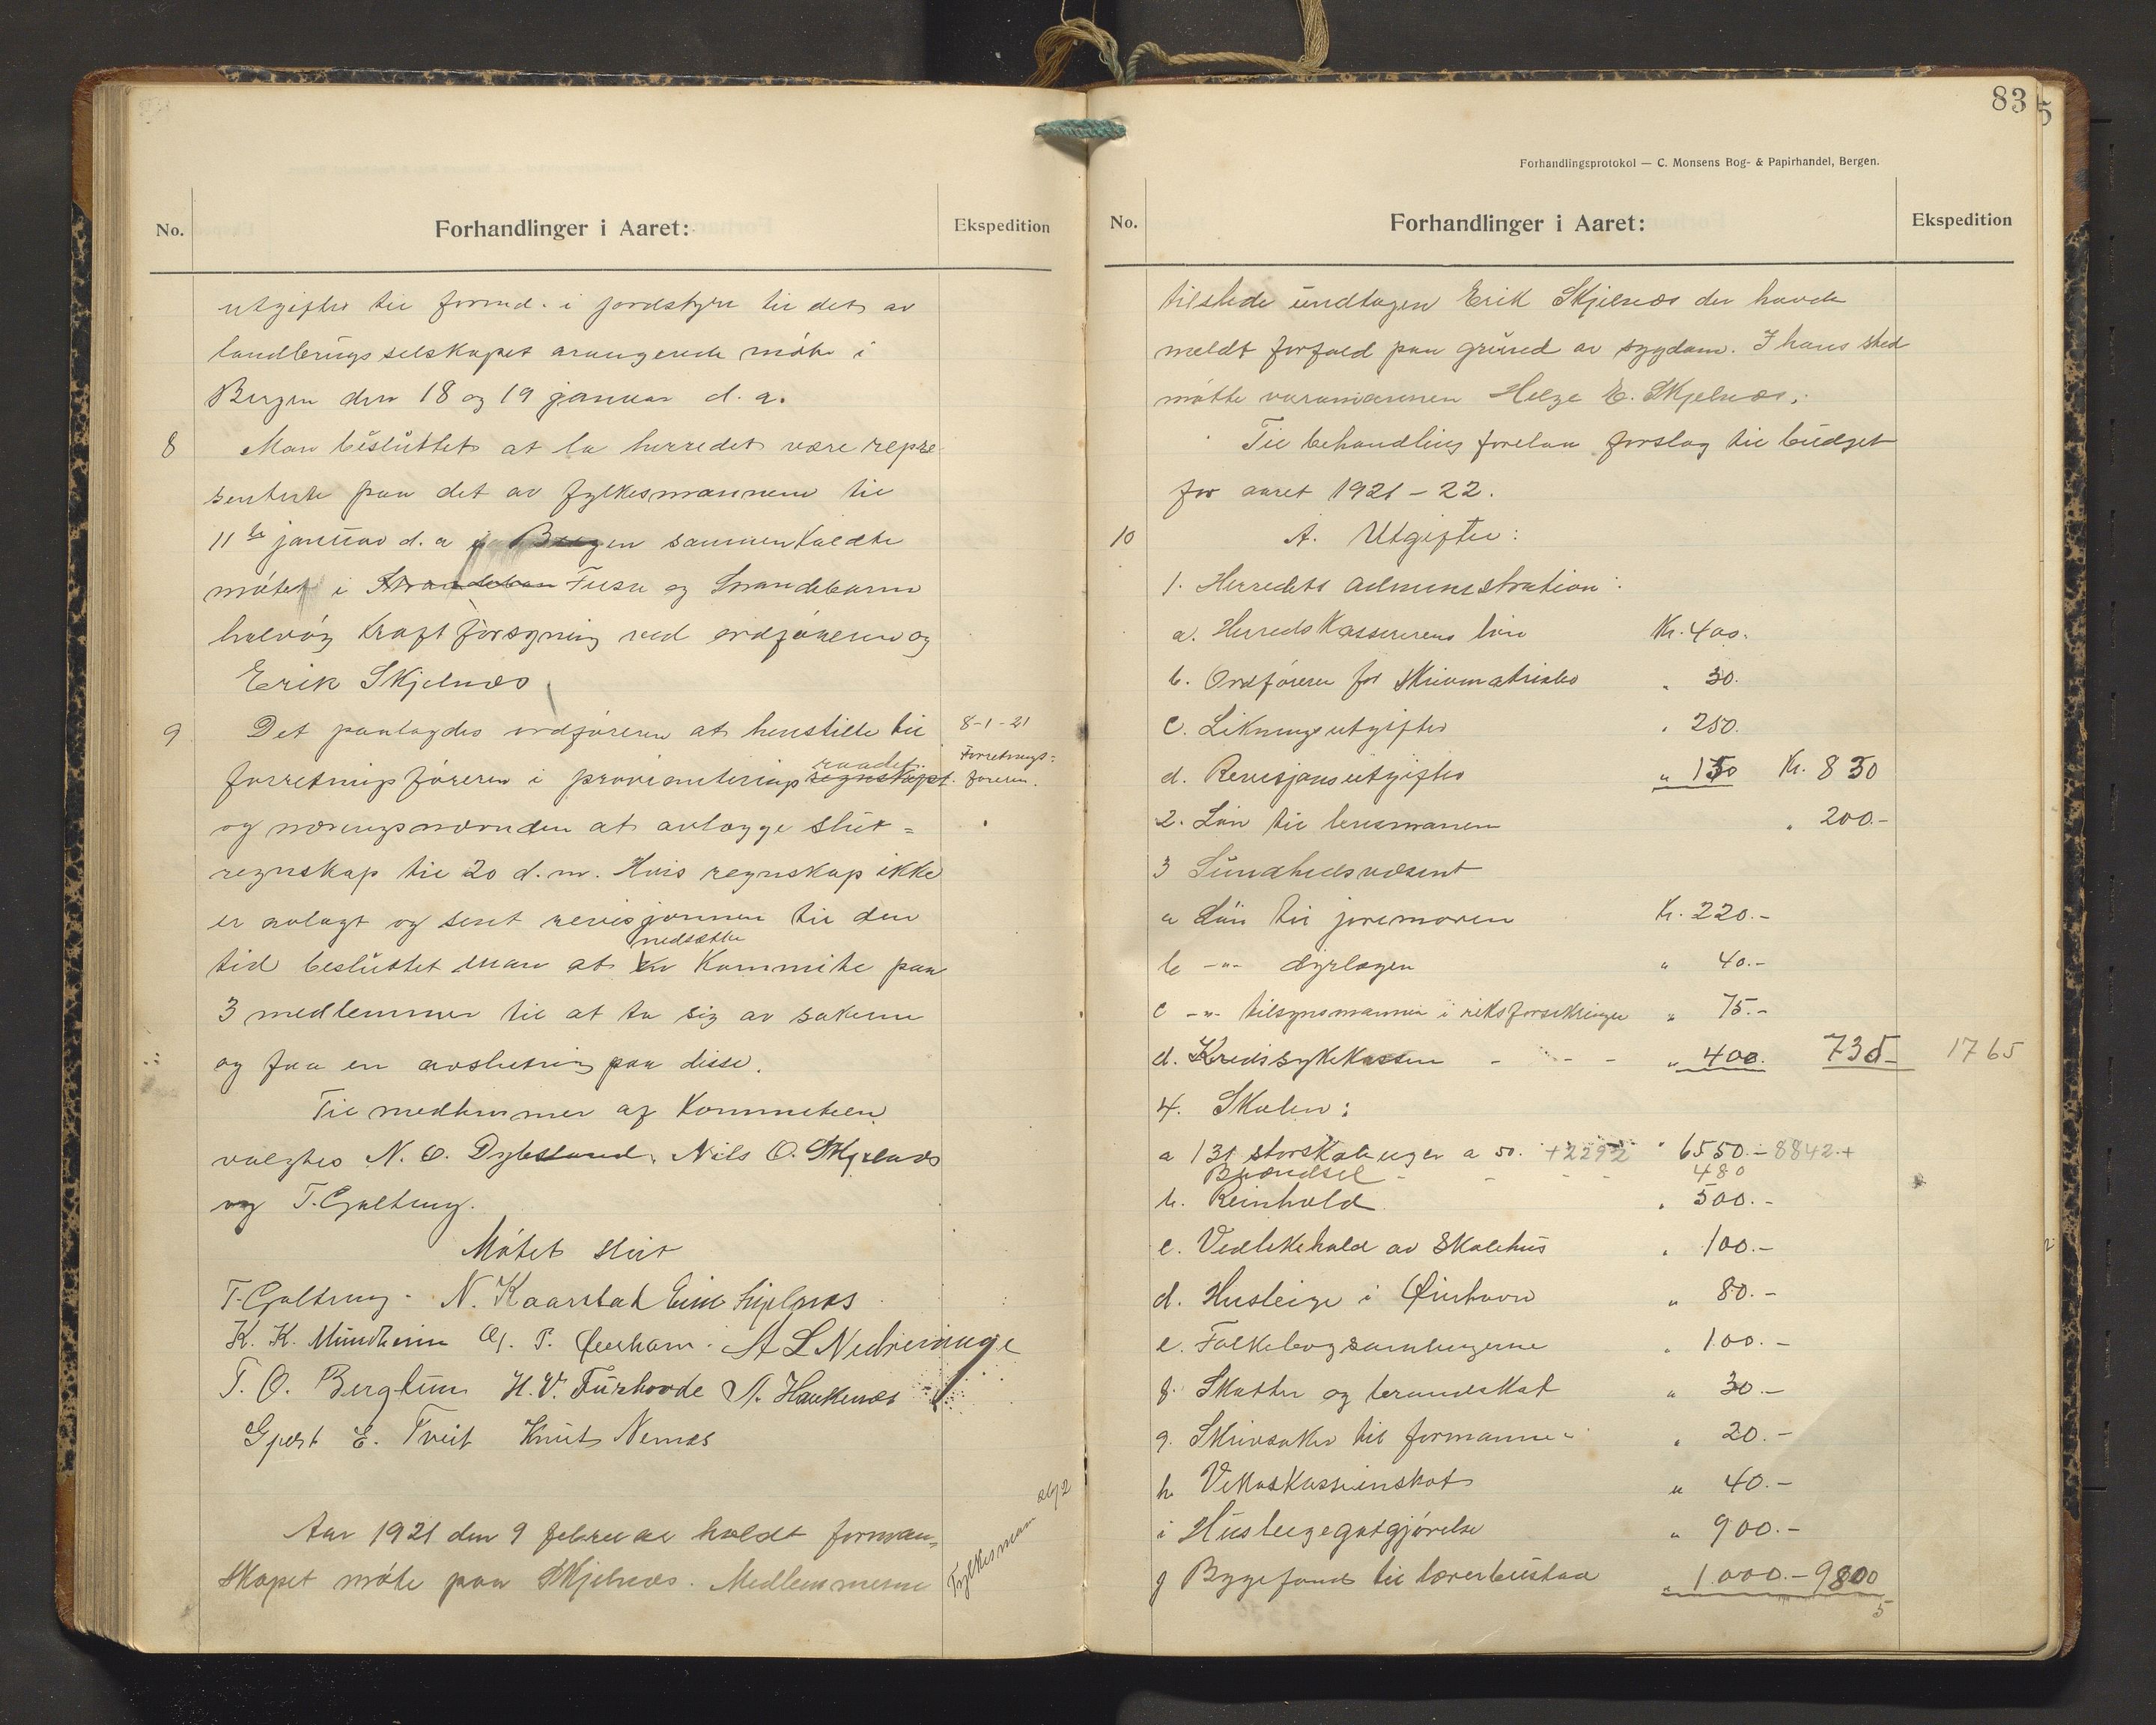 No. Forhandlinger i Aaret: Ekspedition
utgifter til formd. i jordstyre til det av
landbrugsselskapet arangerede møte i
Bergen den 18 og 19 januar d. a.
8 Man besluttet at la herredet være repre-
senterte paa det av fylkesmannen til
11te januar d. a i Bergen sammenkaldte
møtet i Strandebarm Fuse og Strandebarm
halvøy Kraftforsyning ved ordføreren og
Erik Skjelnæs
9 Det paalagdes ordføreren at henstille til 8-1-21
raadet Forretnings-
forretningsføreren i provianterings regnskapet. føreren.
og næringsnævnden at avlægge slut-
regnskap til 20 d. m. Hvis regnskap ikke
er avlagt og sent revisjonnen til den
nedsætte
tid besluttet man at en Kommite paa
3 medlemmer til at ta sig av sakerne
og faa en avslutning paa disse.
Til medlemmer af Kommiteen
valgtes N. O. Dybsland, Nils O. Skjelnæs
og T. Galtung.
Møtet slut
T. Galtung. N. Kaarstad Erik Skjelnæs
K. K. Mundheim O. P. Øierhavn. A L Nedrevaage
T. O. Berghun H. V. Furhovde A. Haukenæs
Gjert E. Tveit Knut Nernes
Aar 1921 den 9 februar holdt forman-
skapet møte paa Skjelnæs. Medlemmerne
Fylkesmann
83
5
Forhandlingsprotokol — C. Monsens Bog- & Papirhandel, Bergen.
No. Forhandlinger i Aaret: Ekspedition
tilstede undtagen Erik Skjelnæs der havde
meldt forfald paa grund av sygdom. I hans sted
møtte varamannen Helge E. Skjelnæs.
Til behandling forelaa forslag til budget
for aaret 1921 - 22.
10 A. Utgifter:
1. Herredets administration:
a. Herredskassererens løn Kr. 400.
b. Ordføreren for skrivmatrialer " 30.
c. Likningsutgifter " 250.
d. Revisjonsutgifter " 150 Kr. 830
2. Løn til lensmannen " 200.-
3 Sundhedsvæsent
a Løn til joremoren Kr. 220.-
b -"- dyrlægen " 40.-
c -"- tilsynsmannen i riksforsikringen " 75.-
d. Kredssykekassen - - - " 400. 735- 1765
4. Skolen:
a 131 storskoleuger a 50. +2292 " 6550.- 8842.+
Brændsel - - - - 480
b. Reinhold " 500.-
c. Vedlikehold av Skolehus " 100.-
d. Husleige i Øierhavn " 80.-
e. Folkebogsamlingerne " 100.-
f. Skatter og brandskat " 30.-
g. Skrivsaker til formannen " 20.-
h Vikaskassienskot " 40.-
i Husleigegodtgjørelse " 900.-
j Byggefond til lærerbustad " 1000.- 9800
5